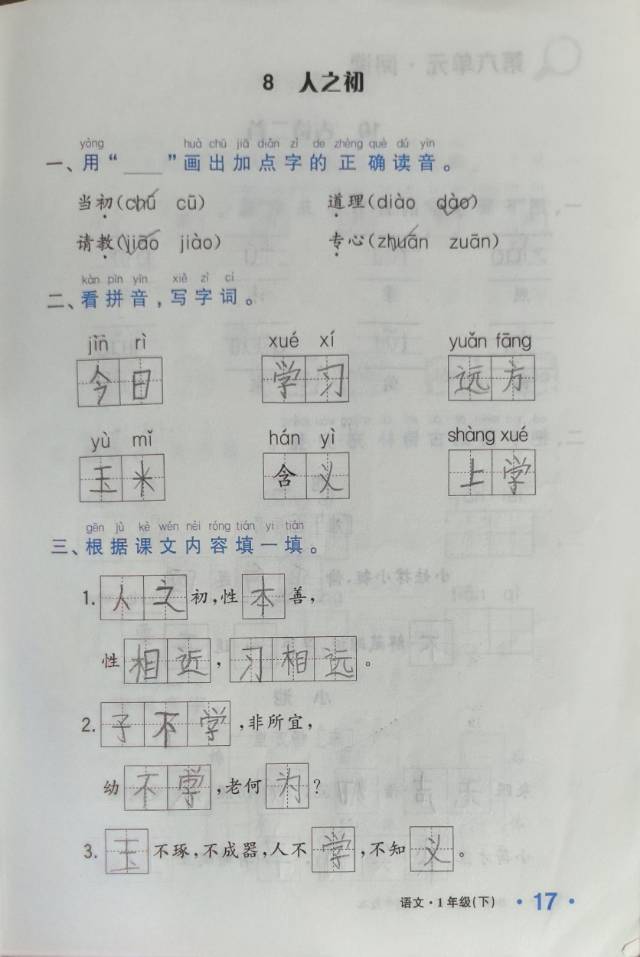 8 人之初
yòng huà chū jiā diǎn zì de zhèng què dú yīn
一、用“___”画出加点字的正确读音。
当初(chū cū) 道理(diào dào)
请教(jiāo jiào) 专心(zhuān zuān)
kàn pīn yīn xiě zì cí
二、看拼音,写字词。
jīn rì xué xí yuǎn fāng
今日 学习 远方
yù mǐ hán yì shàng xué
玉米 含义 上学
gēn jù kè wén nèi róng tián yi tián
三、根据课文内容填一填。
1. 人之初,性本善,
性相近,习相远。
2. 子不学,非所宜,
幼不学,老何为?
3. 玉不琢,不成器,人不学,不知义。
语文·1年级(下) ·17·